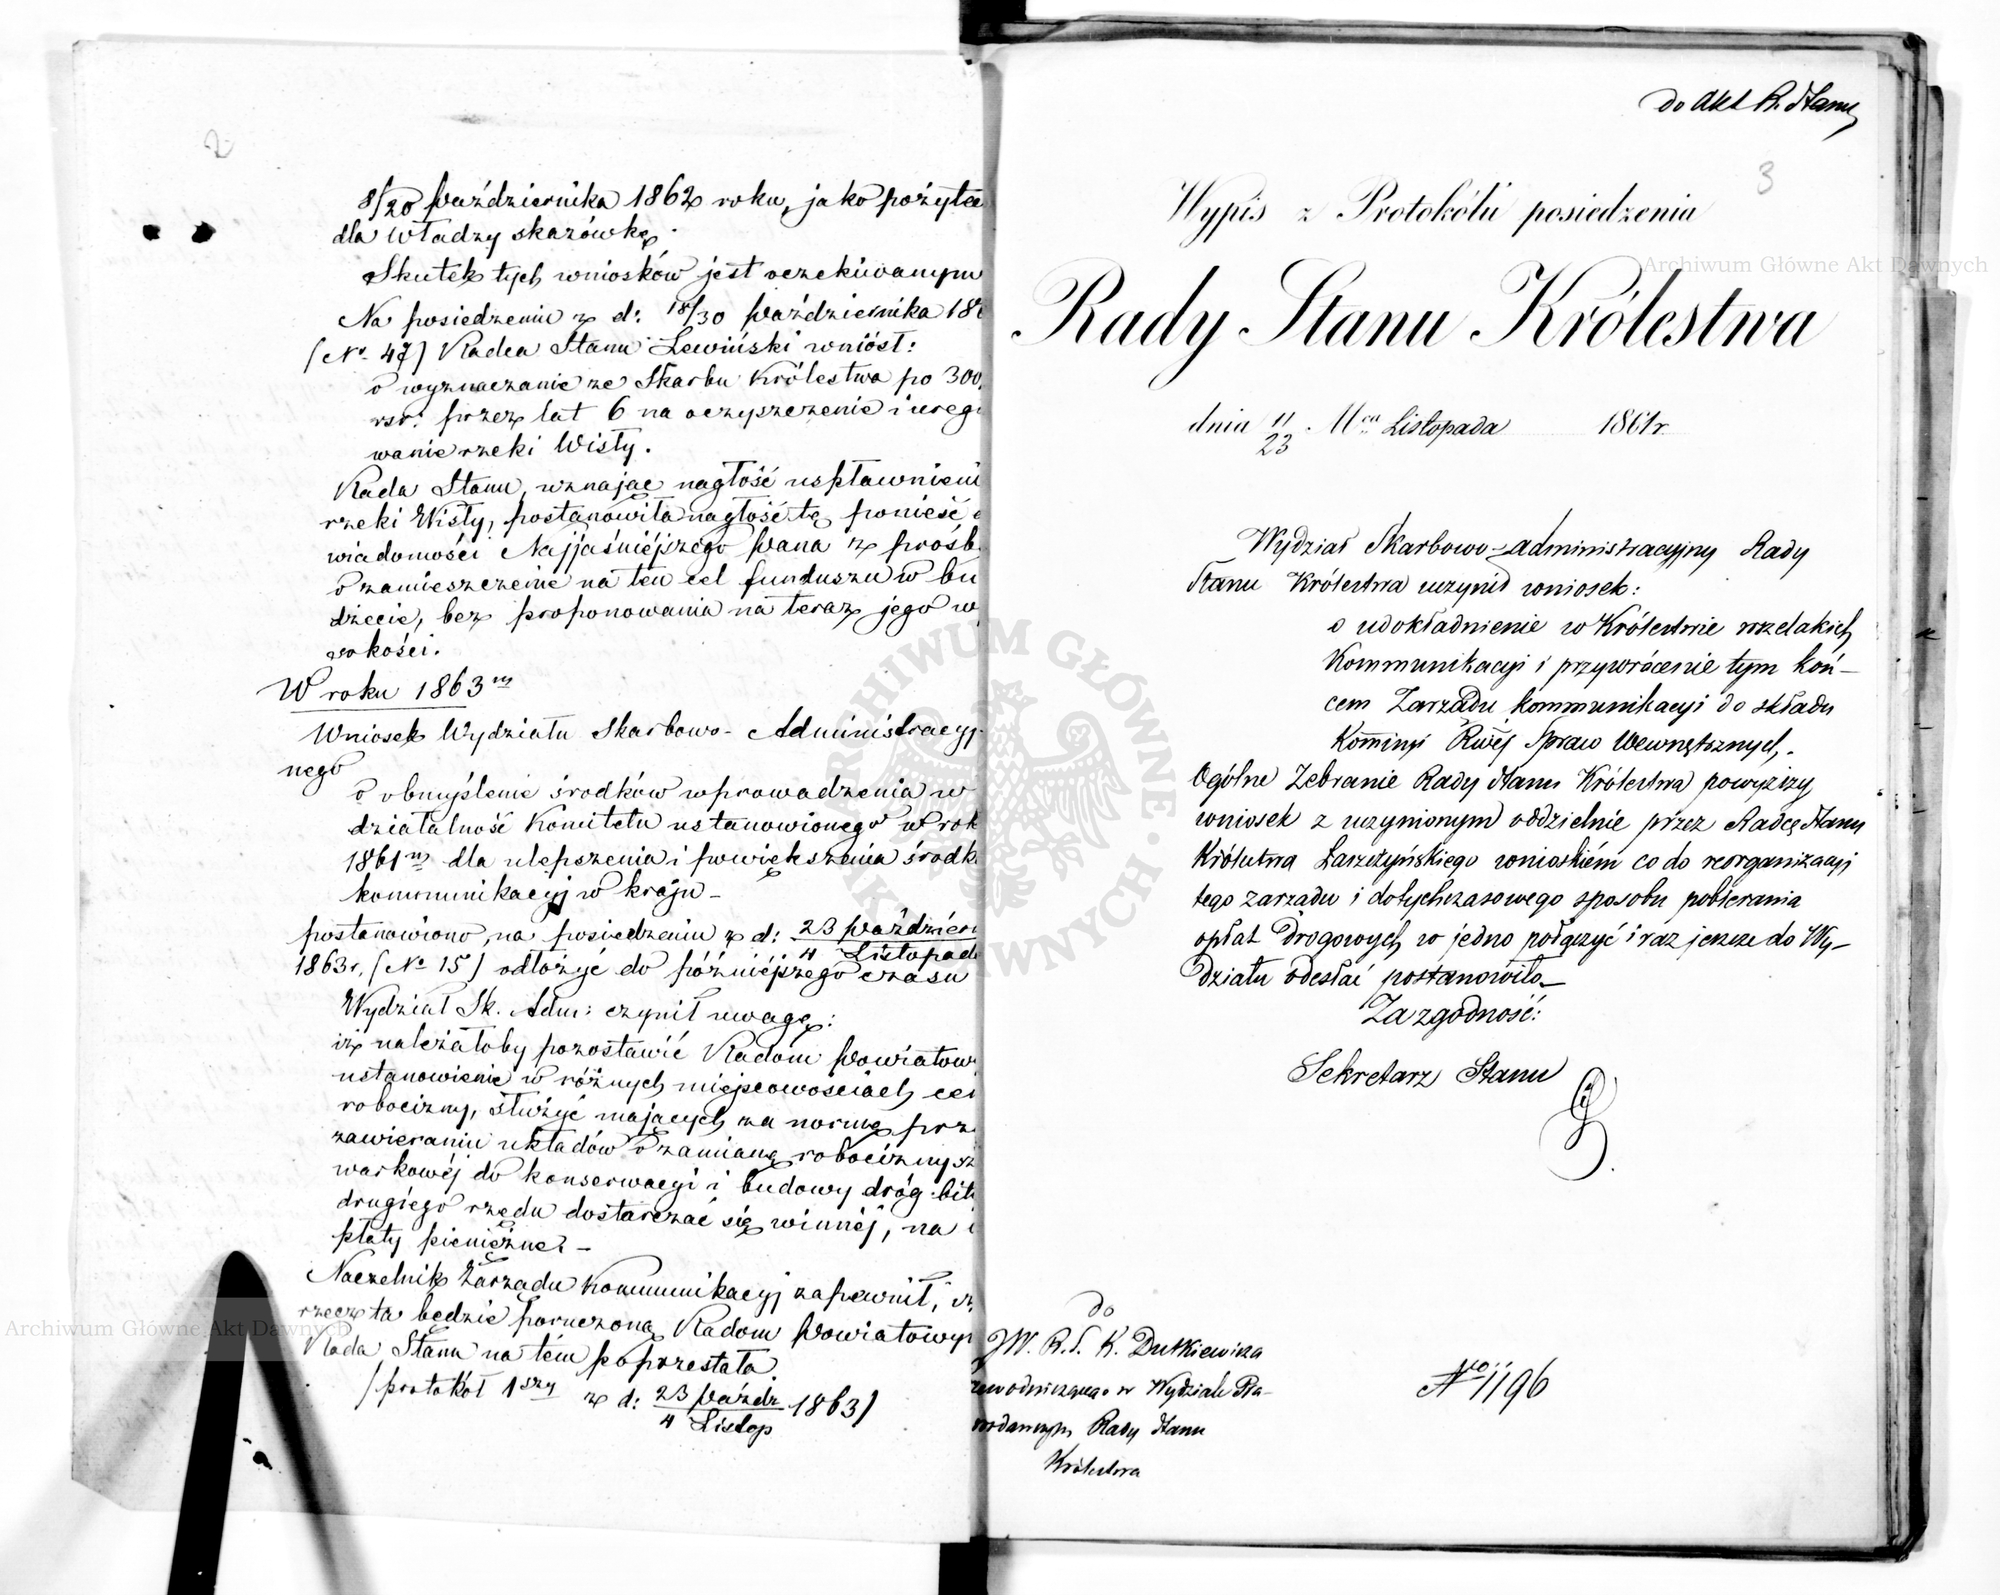 2
8/20 Października 1862 roku, jako pożytecz
dla Władzy skazówkę.
Skutek tych wniosków jest oczekiwanym
Na posiedzeniu z d: 18/30 Października 18
(No 47) Radca Stanu Lewiński wniósł:
o wyznaczanie ze Skarbu Królestwa po 300,
rsr: przez lat 6 na oczyszczenie i uregu
wanie rzeki Wisły.
Rada Stanu, uznając nagłość uspławnieni
rzeki Wisły, postanowiła nagłość tę ponieść
wiadomości Najjaśniejszego Pana z prośb
o zamieszczenie na ten cel funduszu w bu
dżecie, bez proponowania na teraz jego w
sokości.
W roku 1863m
Wniosek Wydziału Skarbowo-Administracyj-
nego
o obmyślenie środków wprowadzenia w
działalność Komitetu ustanowionego w rok
1861m dla ulepszenia i powiększenia środk
kommunikacyj w kraju –
postanowiono, na posiedzeniu z d: 23 Paździer / 4 Listopad
1863r. (No 15) odłożyć do późniejszego czasu
Wydział Sk. Adm: czynił uwagę:
iż należałoby pozostawić Radom Powiatow
ustanowienie w różnych miejscowościach cen
robocizny, służyć mających za normę prz
zawieraniu układów o zamianę robocizny sz
warkowéj do konserwacyi i budowy dróg bit
drugiego rzędu dostarczać się winnéj, na
płaty pieniężne. –
Naczelnik Zarządu Kommunikacyj zapewnił, iż
rzecz ta będzie poruczoną Radom Powiatowy
Rada Stanu na tém poprzestała.
(protokół 1szy z d: 23 Paźdz / 4 Listop 1863)
do Akt R. Stanu
3
Wypis z Protokółu posiedzenia
Rady Stanu Królestwa
dnia 11/23 Mca Listopada 1861 r.
Wydział Skarbowo-Administracyjny Rady
Stanu Królestwa uczynił wniosek:
o udokładnienie w Królestwie wszelakich
Kommunikacyi i przywrócenie tym koń-
cem Zarządu kommunikacyi do składu
Kommisyi Rwéj Spraw Wewnętrznych.
Ogólne Zebranie Rady Stanu Królestwa powyższy
wniosek z uczynionym oddzielnie przez Radcę Stanu
Królestwa Łaszczyńskiego wnioskiem co do reorganizacyi
tego zarządu i dotychczasowego sposobu pobierania
opłat drogowych w jedno połączyć i raz jeszcze do Wy-
działu odesłać postanowiło. –
Za zgodność:
Sekretarz Stanu
do
JW. R. S. K. Dutkiewicza
zewodniczącego w Wydziale Pra-
wodawczym Rady Stanu
Królestwa
No 1196
Archiwum Główne Akt Dawnych
Archiwum Główne Akt Dawnych
ARCHIWUM GŁÓWNE AKT DAWNYCH